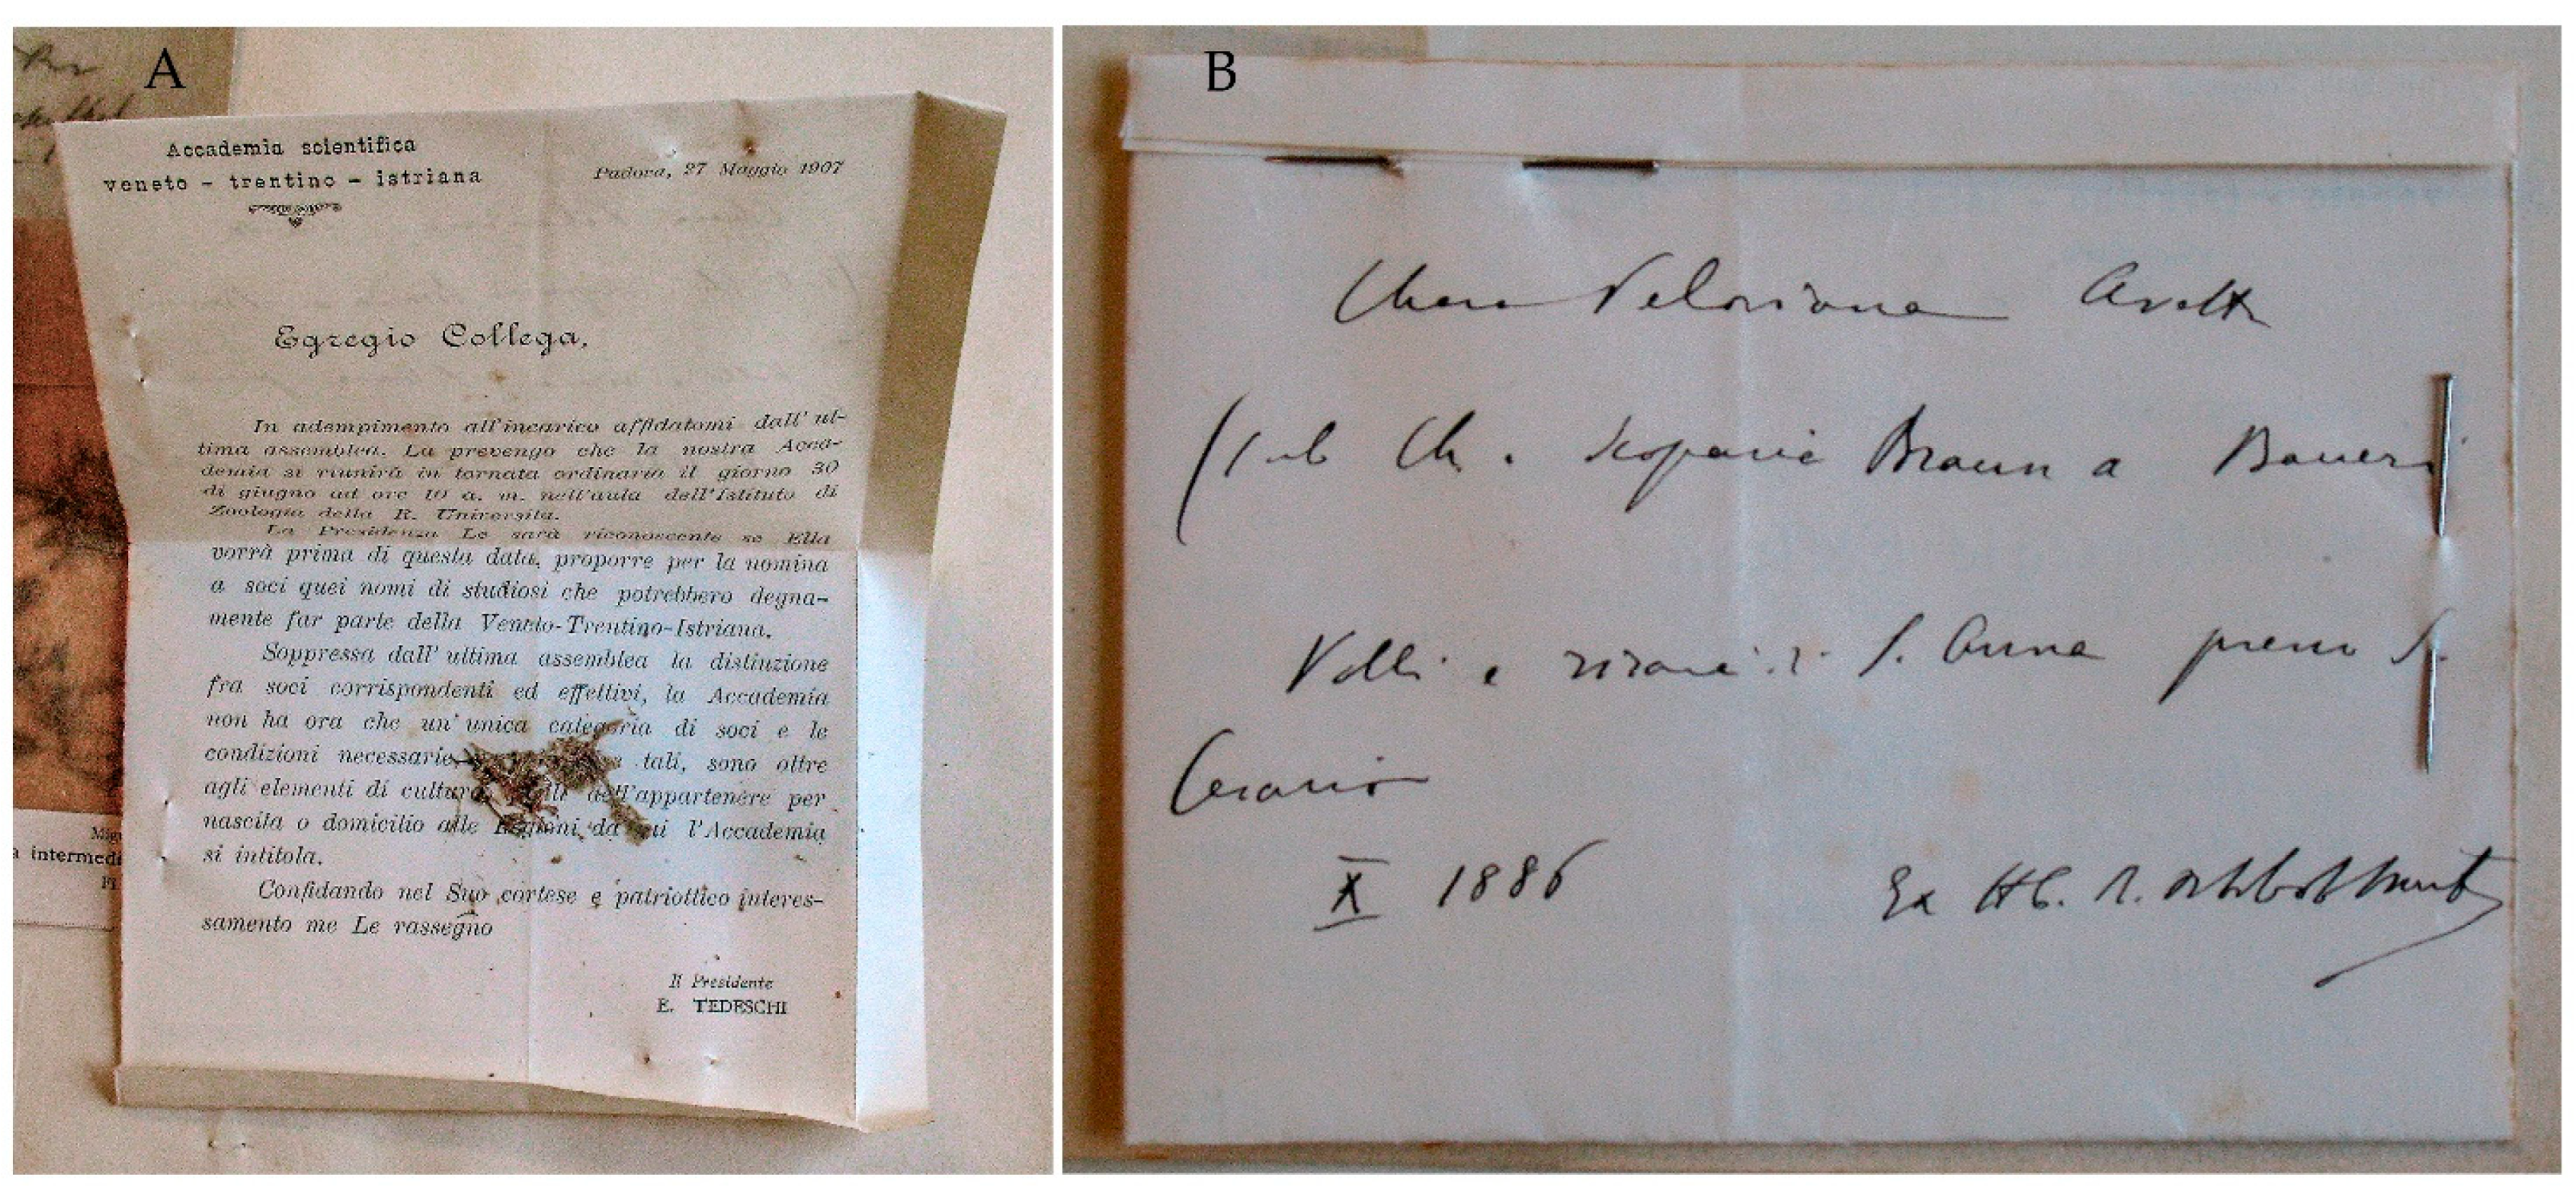 A
Accademia scientifica
veneto - trentino - istriana
Padova, 27 Maggio 1907
Egregio Collega,
In adempimento all'incarico affidatomi dall' ul-
tima assemblea. La prevengo che la nostra Acca-
demia si riunirà in tornata ordinaria il giorno 30
di giugno ad ore 10 a. m. nell'aula dell'Istituto di
Zoologia della R. Università.
La Presidenza Le sarà riconoscente se Ella
vorrà prima di questa data, proporre per la nomina
a soci quei nomi di studiosi che potrebbero degna-
mente far parte della Veneto-Trentino-Istriana.
Soppressa dall' ultima assemblea la distinzione
fra soci corrispondenti ed effettivi, la Accademia
non ha ora che un' unica categoria di soci e le
condizioni necessarie tali, sono oltre
agli elementi di cultura dell'appartenere per
nascita o domicilio alle Regioni da cui l'Accademia
si intitola.
Confidando nel Suo cortese e patriottico interes-
samento me Le rassegno
Il Presidente
E. TEDESCHI
a intermedi
B
Chara Avetta
(sub Ch. scoparia Braun a Baueri
Valli e risaie S. Anna presso S.
X 1886
Ex Hb.